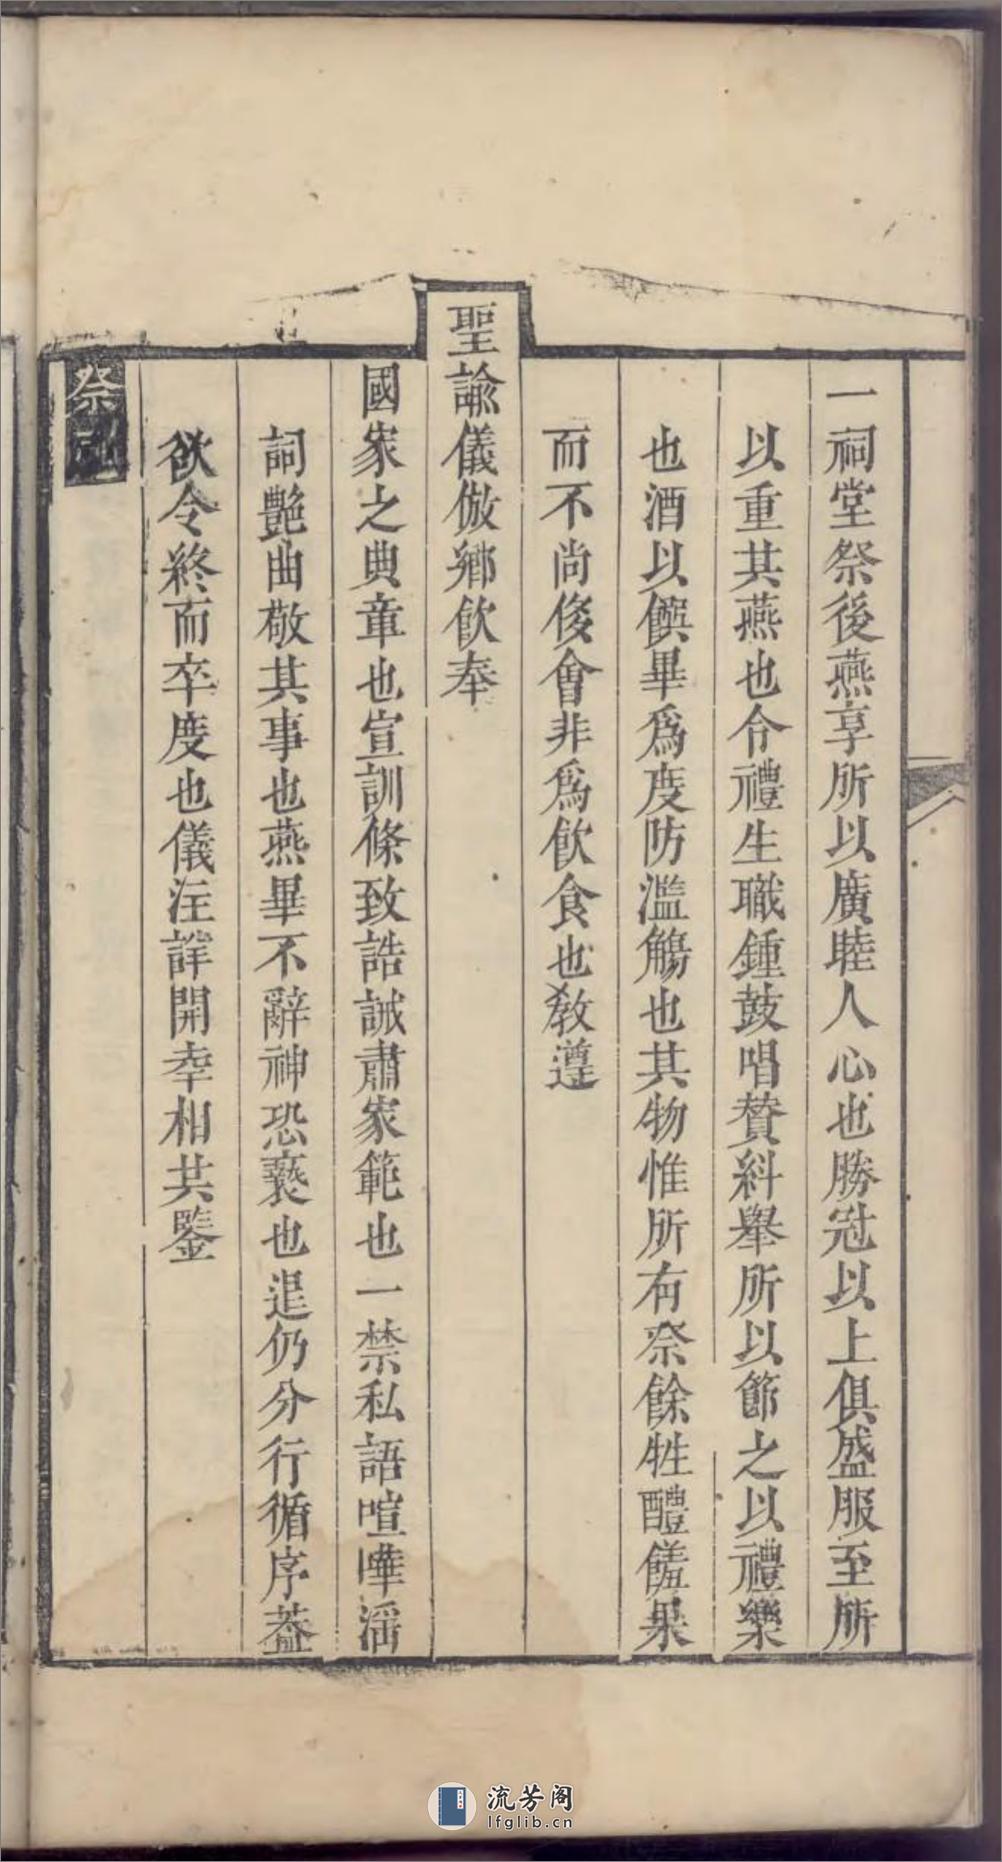 一祠堂祭後燕享所以廣睦人心也勝冠以上俱盛服至所
以重其燕也令禮生職鍾鼓唱賛糾舉所以節之以禮樂
也酒以饌畢爲度防濫觴也其物惟所有祭餘牲醴饈果
而不尚侈會非爲飲食也敎遵
聖諭儀倣鄉飲奉
國家之典章也宣訓條致誥誡肅家範也一禁私語喧嘩滛
詞艶曲敬其事也燕畢不辭神恐䙝也退仍分行循序葢
欲令終而卒度也儀注詳開幸相共鑒
祭
流芳阁
lfglib.cn